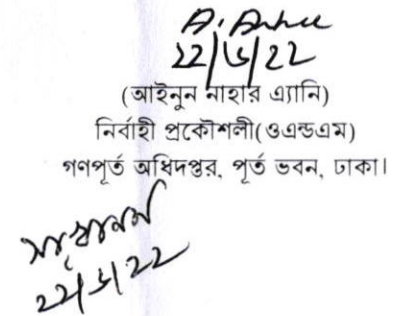 22/৬/22
(আইনুন নাহার এ্যানি)
নির্বাহী প্রকৌশলী(ওএন্ডএম)
গণপূর্ত অধিদপ্তর, পূর্ত ভবন, ঢাকা।
22/৬/22